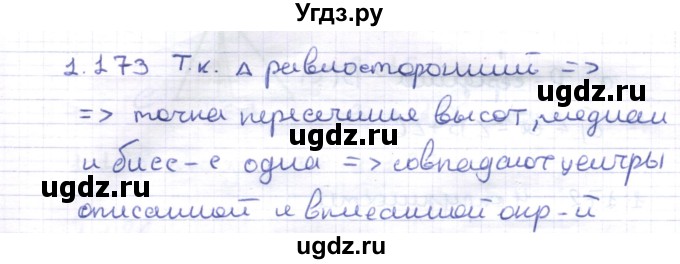 Угдз.ру
1.173 Т.к. Δ равносторонний =>
=> точка пересечения высот, медиан
и бисс-с одна => совпадают центры
описанной и вписанной окр-й
ugdz.ru
ugdz.ru
ugdz.ru
ugdz.ru
ugdz.ru
ugdz.ru